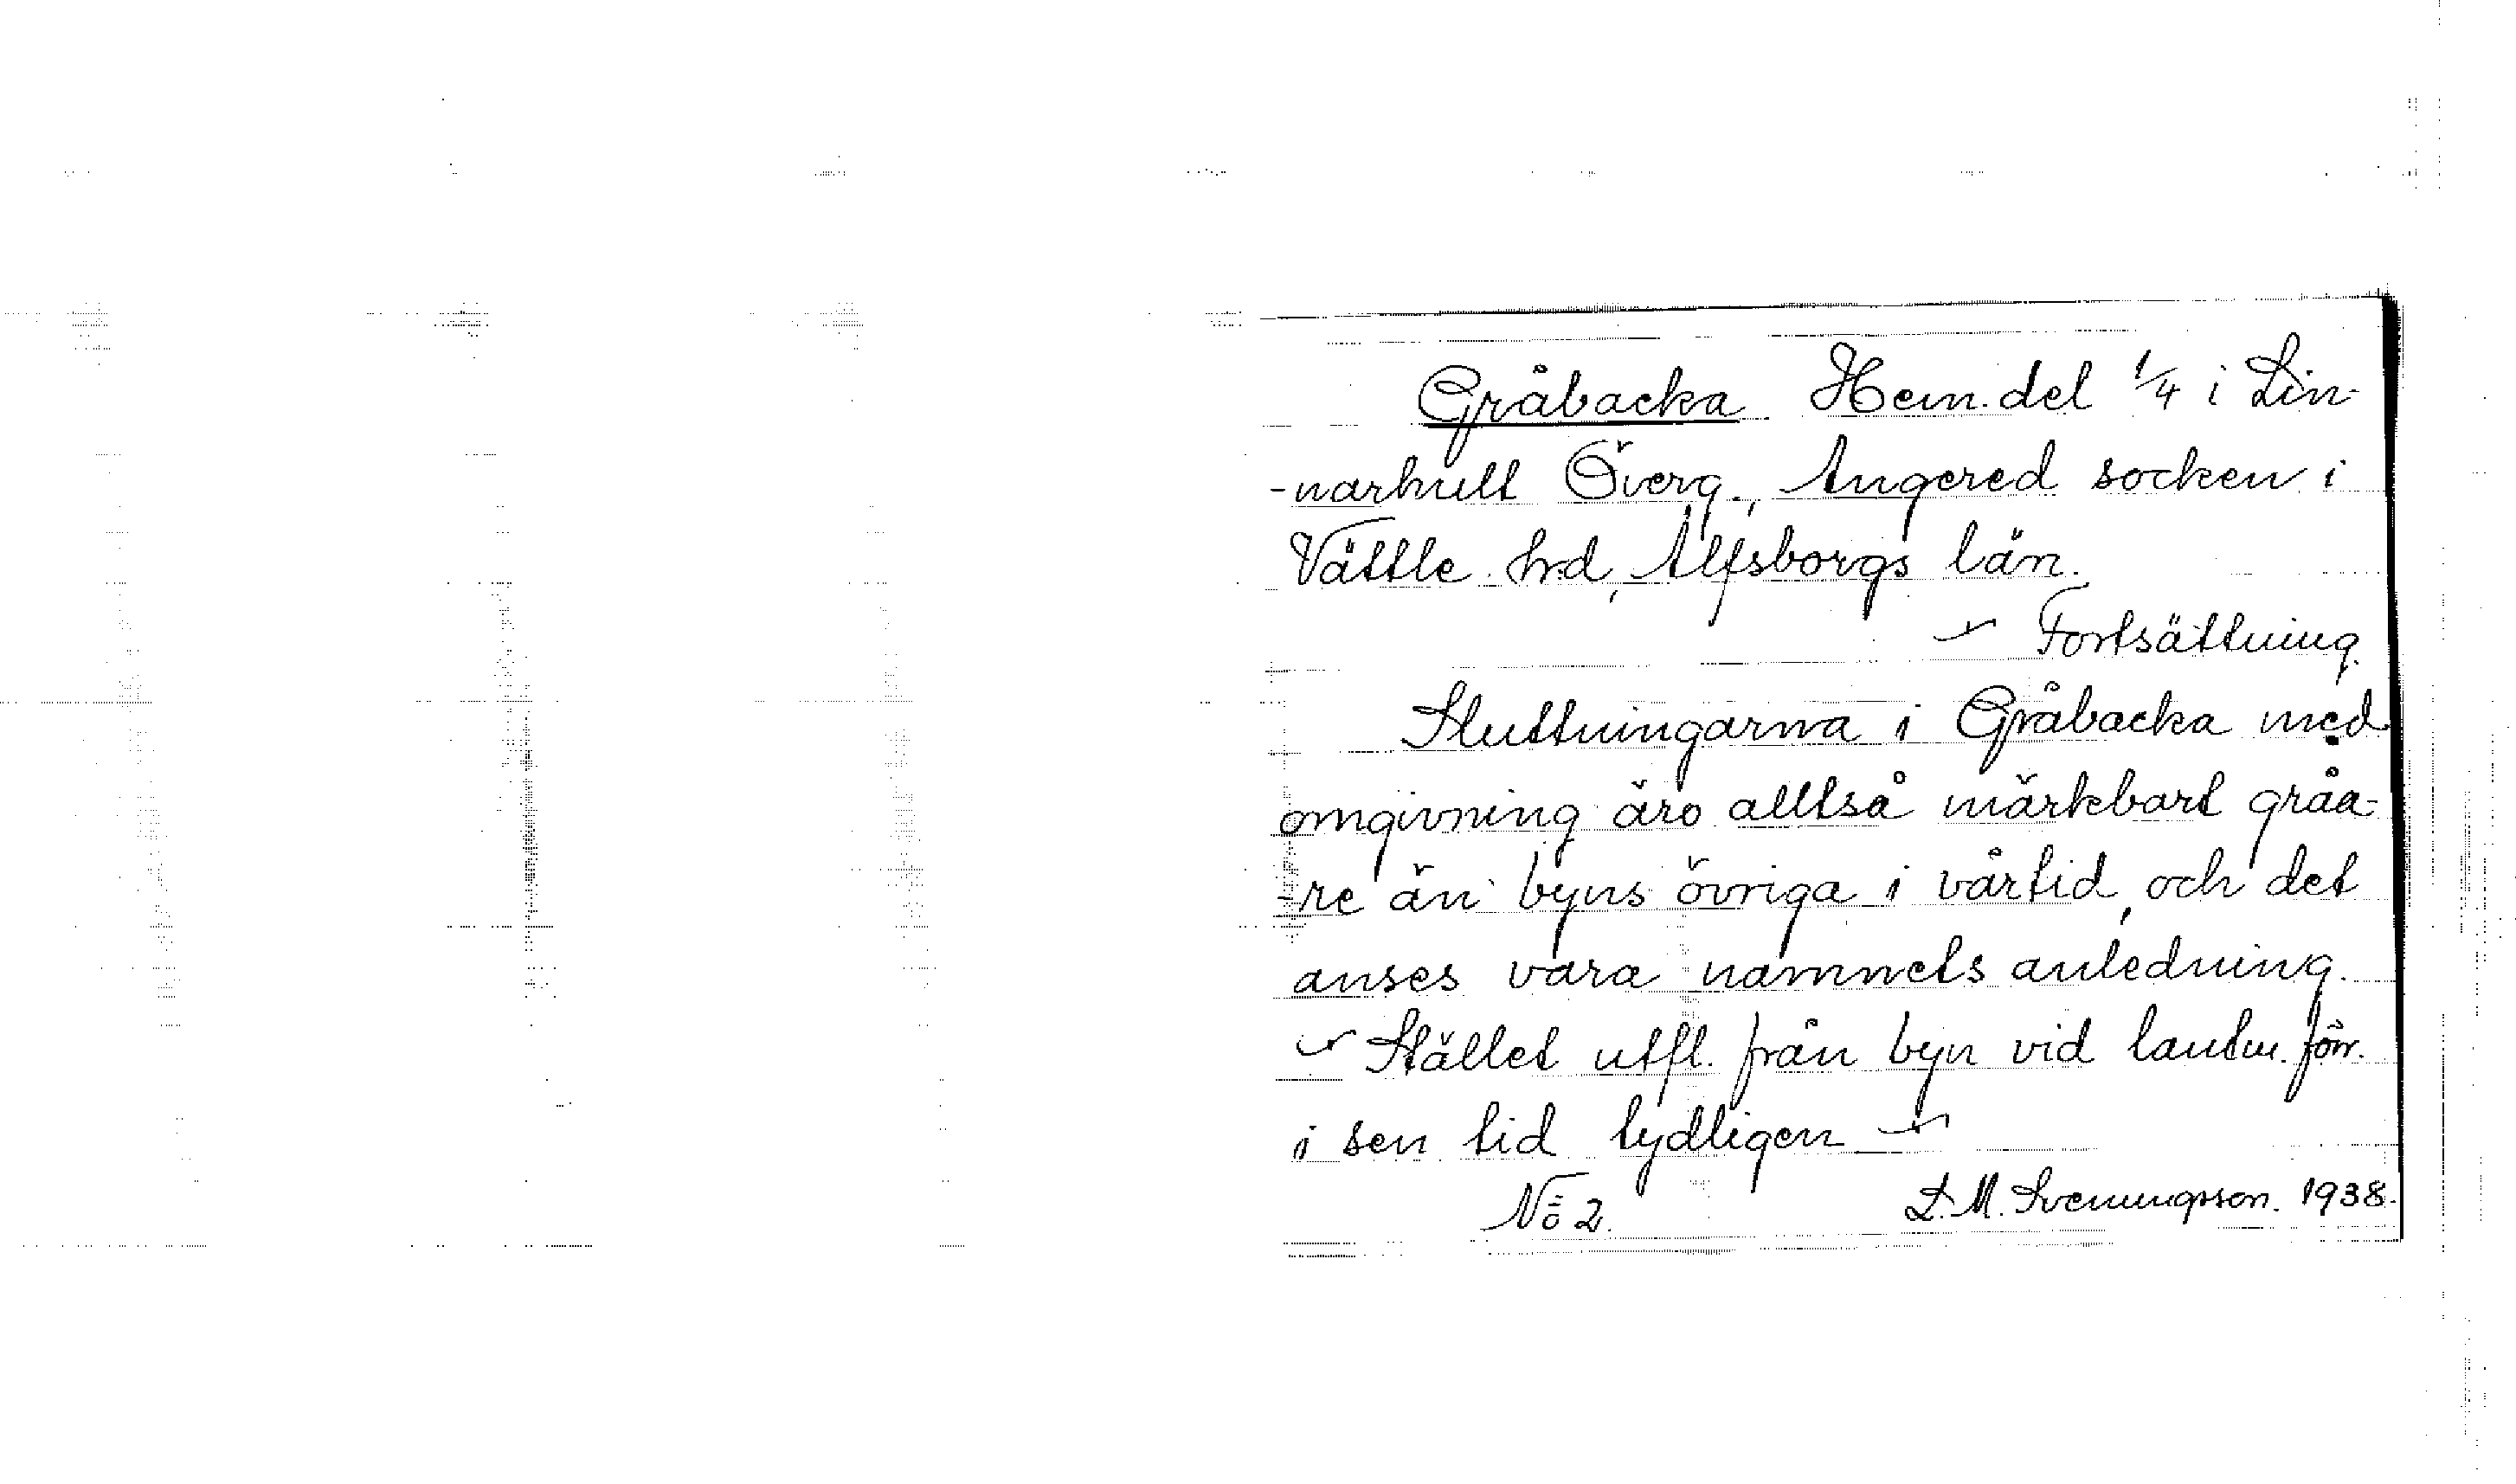 Gråbacka Hem. del 1/4 i Lin-
-narhult Överg., Angered socken i
Vättle hrd, Älfsborgs län.
~ Fortsättning.
Sluttningarna i Gråbacka med
omgivning äro alltså märkbart gråa-
-re än byns övriga i vårtid, och det
anses vara namnets anledning.
~ Stället utfl. från byn vid lantm. förr.
i sen tid tydligen ~
No 2. L. M. Svenungsson. 1938.